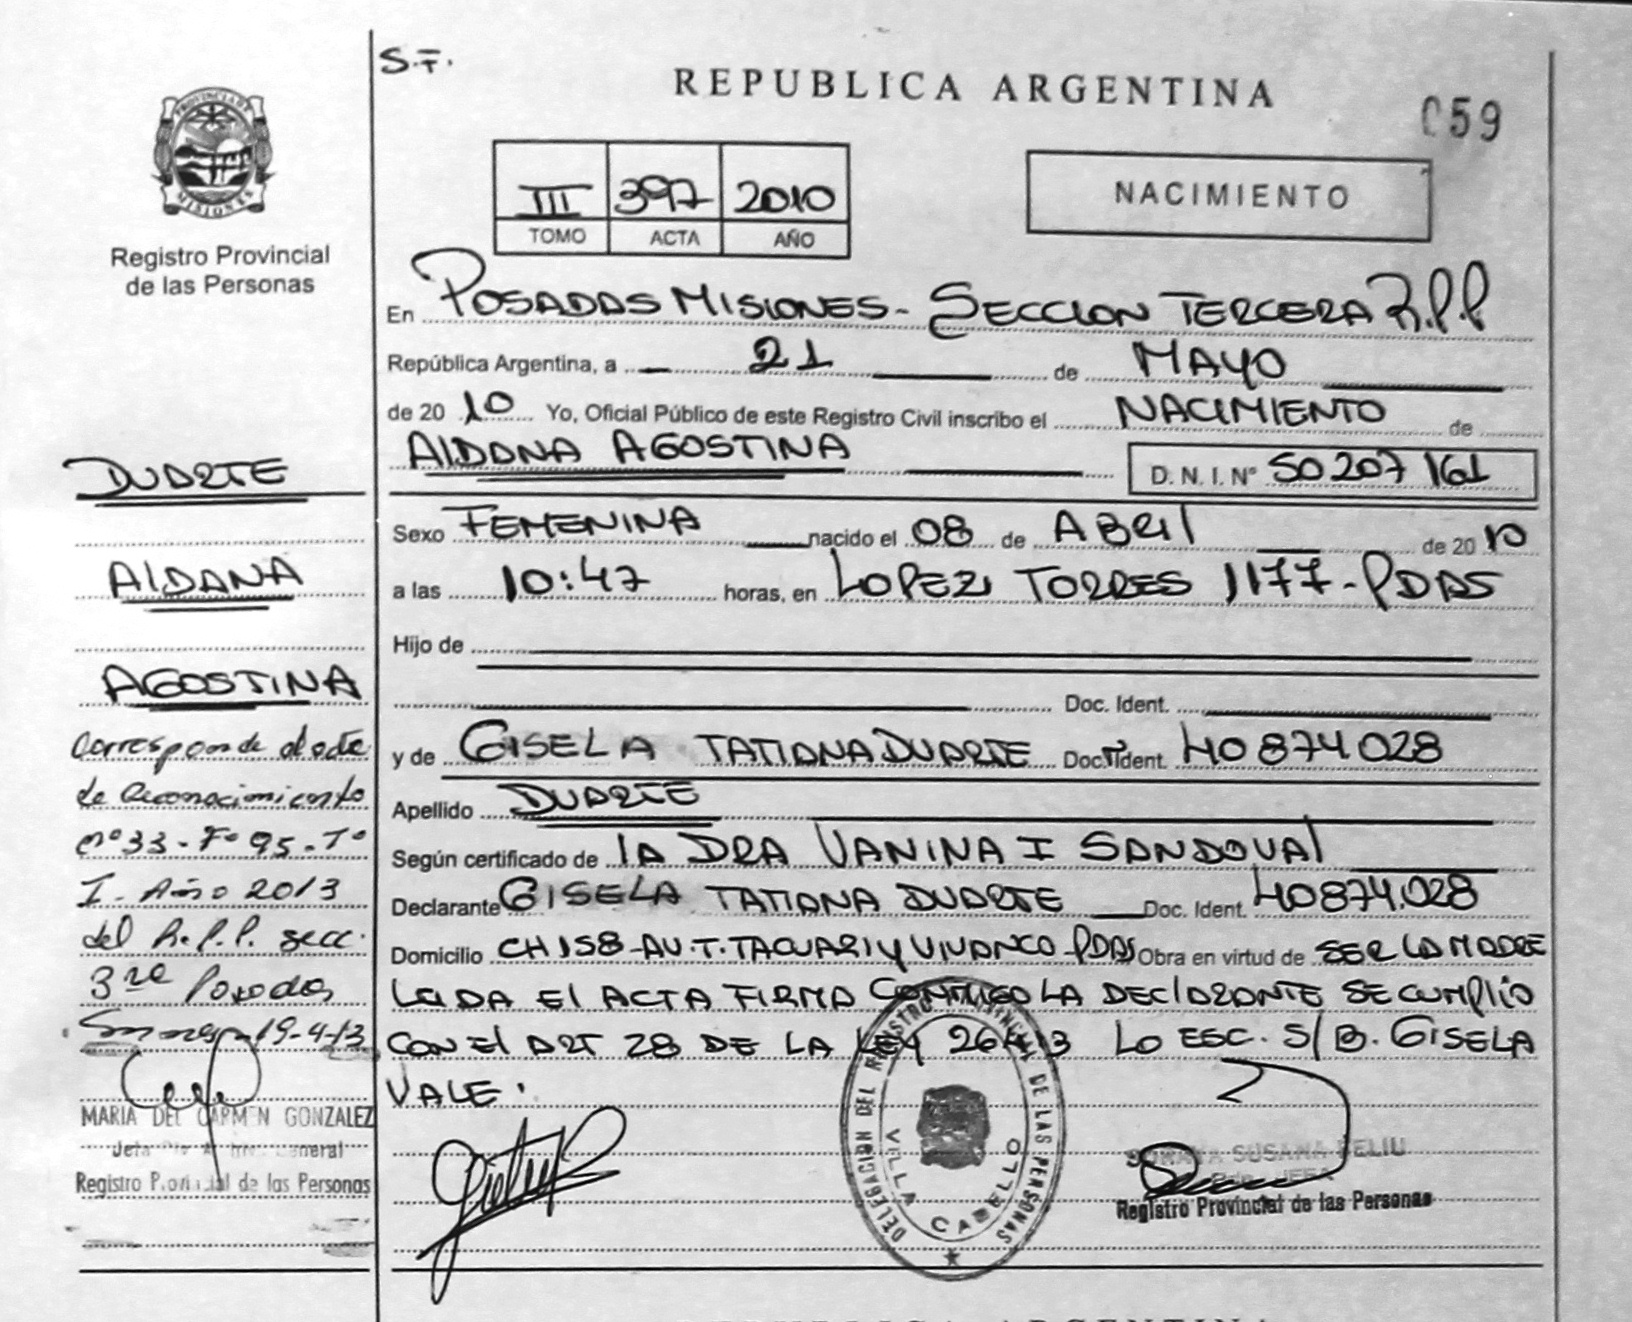 S.T.
REPUBLICA ARGENTINA
059
PROVINCIA DE MISIONES
Registro Provincial
de las Personas
III 397 2010
TOMO ACTA AÑO
NACIMIENTO
En POSADAS MISIONES - SECCION TERCERA R.P.P
República Argentina, a 21 de MAYO
de 2010 Yo, Oficial Público de este Registro Civil inscribo el NACIMIENTO de
ALDANA AGOSTINA D. N. I. Nº 50 207 161
Sexo FEMENINA nacido el 08 de ABRIL de 2010
a las 10:47 horas, en LOPEZ TORRES 1177 - PDAS
Hijo de
Doc. Ident.
y de GISELA TATIANA DUARTE Doc. Ident. 40 874 028
Apellido DUARTE
Según certificado de LA DRA VANINA I SANDOVAL
Declarante GISELA TATIANA DUARTE Doc. Ident. 40874.028
Domicilio CH 158 - AV. T. TACUARI Y VIVANCO PDAS Obra en virtud de SER LA MADRE
LEIDA El ACTA FIRMA CONMIGO LA DECLARANTE SE CUMPLIO
CON El ART 28 DE LA LEY 26413 LO ESC. S/B. GISELA
VALE.
DUARTE
ALDANA
AGOSTINA
Corresponde al acta
de reconocimiento
nº 33 - Fº 95 - Tº
I - Año 2013
del R.P.P. secc.
3ra Posadas
19-4-13
MARIA DEL CARMEN GONZALEZ
General
Registro Provincial de las Personas
DELEGACION DEL REGISTRO PROVINCIAL DE LAS PERSONAS
VILLA CABELLO
SORAYA SUSANA BELIU
JEFA
Registro Provincial de las Personas